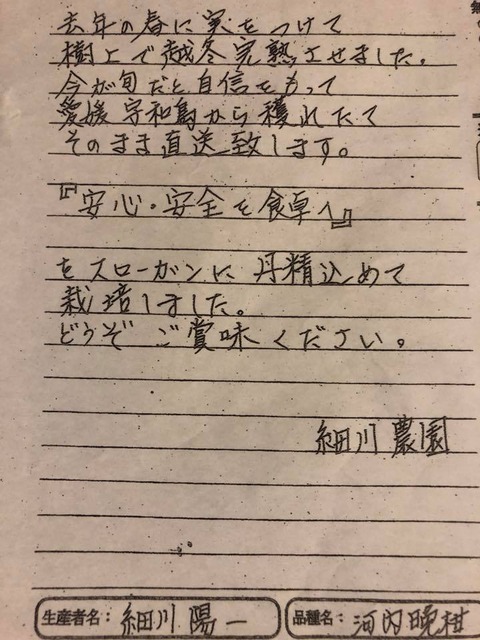 去年の春に実をつけて
樹上で越冬完熟させました。
今が旬だと自信をもって
愛媛宇和島から穫れたて
そのまま直送致します。
『安心・安全を食卓へ』
をスローガンに丹精込めて
栽培しました。
どうぞご賞味ください。
細川農園
生産者名：細川陽一
品種名：河内晩柑